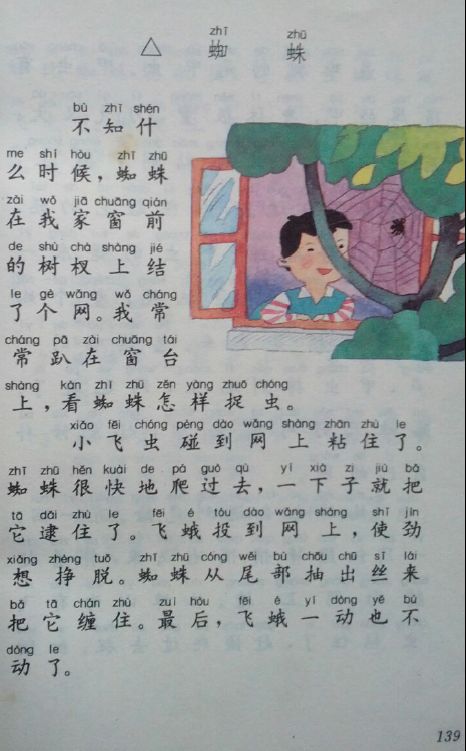 zhī zhū
△ 蜘 蛛
bù zhī shén
不 知 什
me shí hòu zhī zhū
么 时 候，蜘 蛛
zài wǒ jiā chuāng qián
在 我 家 窗 前
de shù chà shàng jié
的 树 杈 上 结
le gè wǎng wǒ cháng
了 个 网。我 常
cháng pā zài chuāng tái
常 趴 在 窗 台
shàng kàn zhī zhū zěn yàng zhuō chóng
上，看 蜘 蛛 怎 样 捉 虫。
xiǎo fēi chóng pèng dào wǎng shàng zhān zhù le
小 飞 虫 碰 到 网 上 粘 住 了。
zhī zhū hěn kuài de pá guò qù yí xià zi jiù bǎ
蜘 蛛 很 快 地 爬 过 去，一 下 子 就 把
tā dǎi zhù le fēi é tóu dào wǎng shàng shǐ jìn
它 逮 住 了。飞 蛾 投 到 网 上，使 劲
xiǎng zhèng tuō zhī zhū cóng wěi bù chōu chū sī lái
想 挣 脱。蜘 蛛 从 尾 部 抽 出 丝 来
bǎ tā chán zhù zuì hòu fēi é yí dòng yě bú
把 它 缠 住。最 后，飞 蛾 一 动 也 不
dòng le
动 了。
139